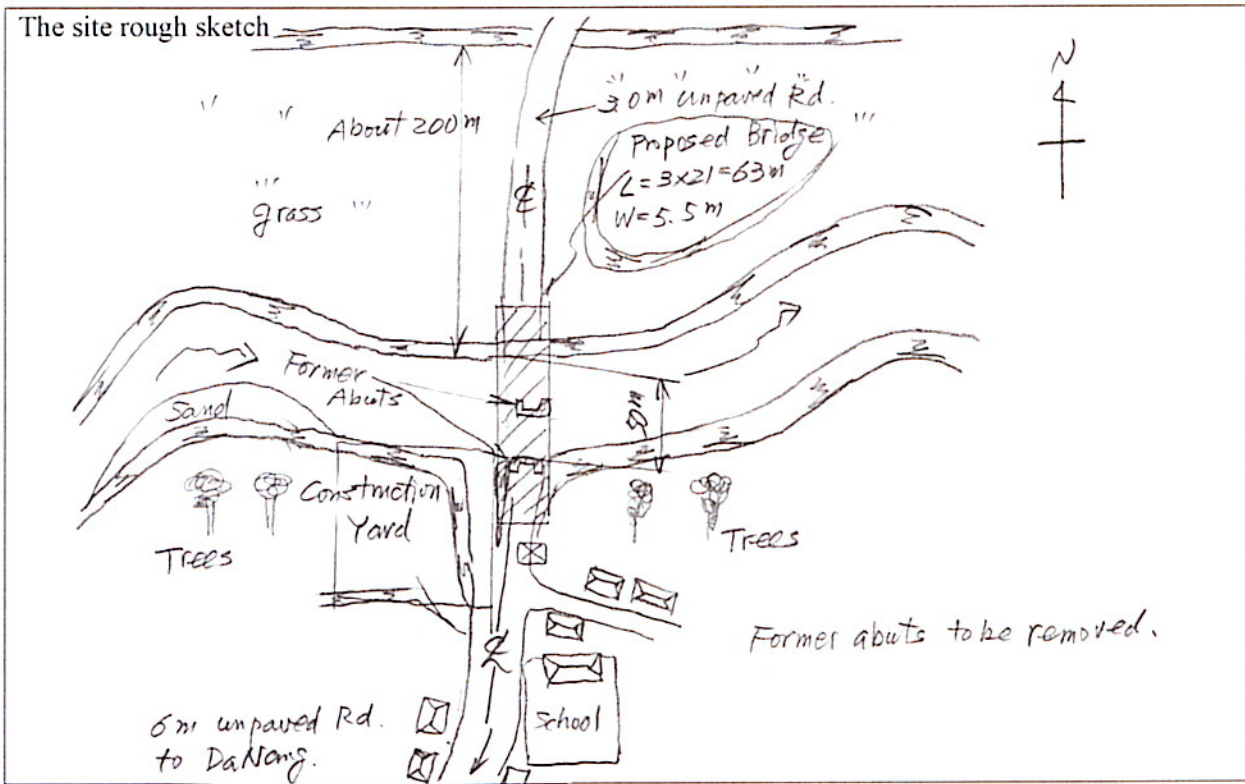 The site rough sketch
N
3.0m unpaved Rd.
About 200m
Proposed Bridge
L=3×21=63m
W=5.5m
℄
grass
Former
Abuts
Sand
Construction
Yard
Trees
Trees
Former abuts to be removed.
℄
School
6m unpaved Rd.
to DaNang.